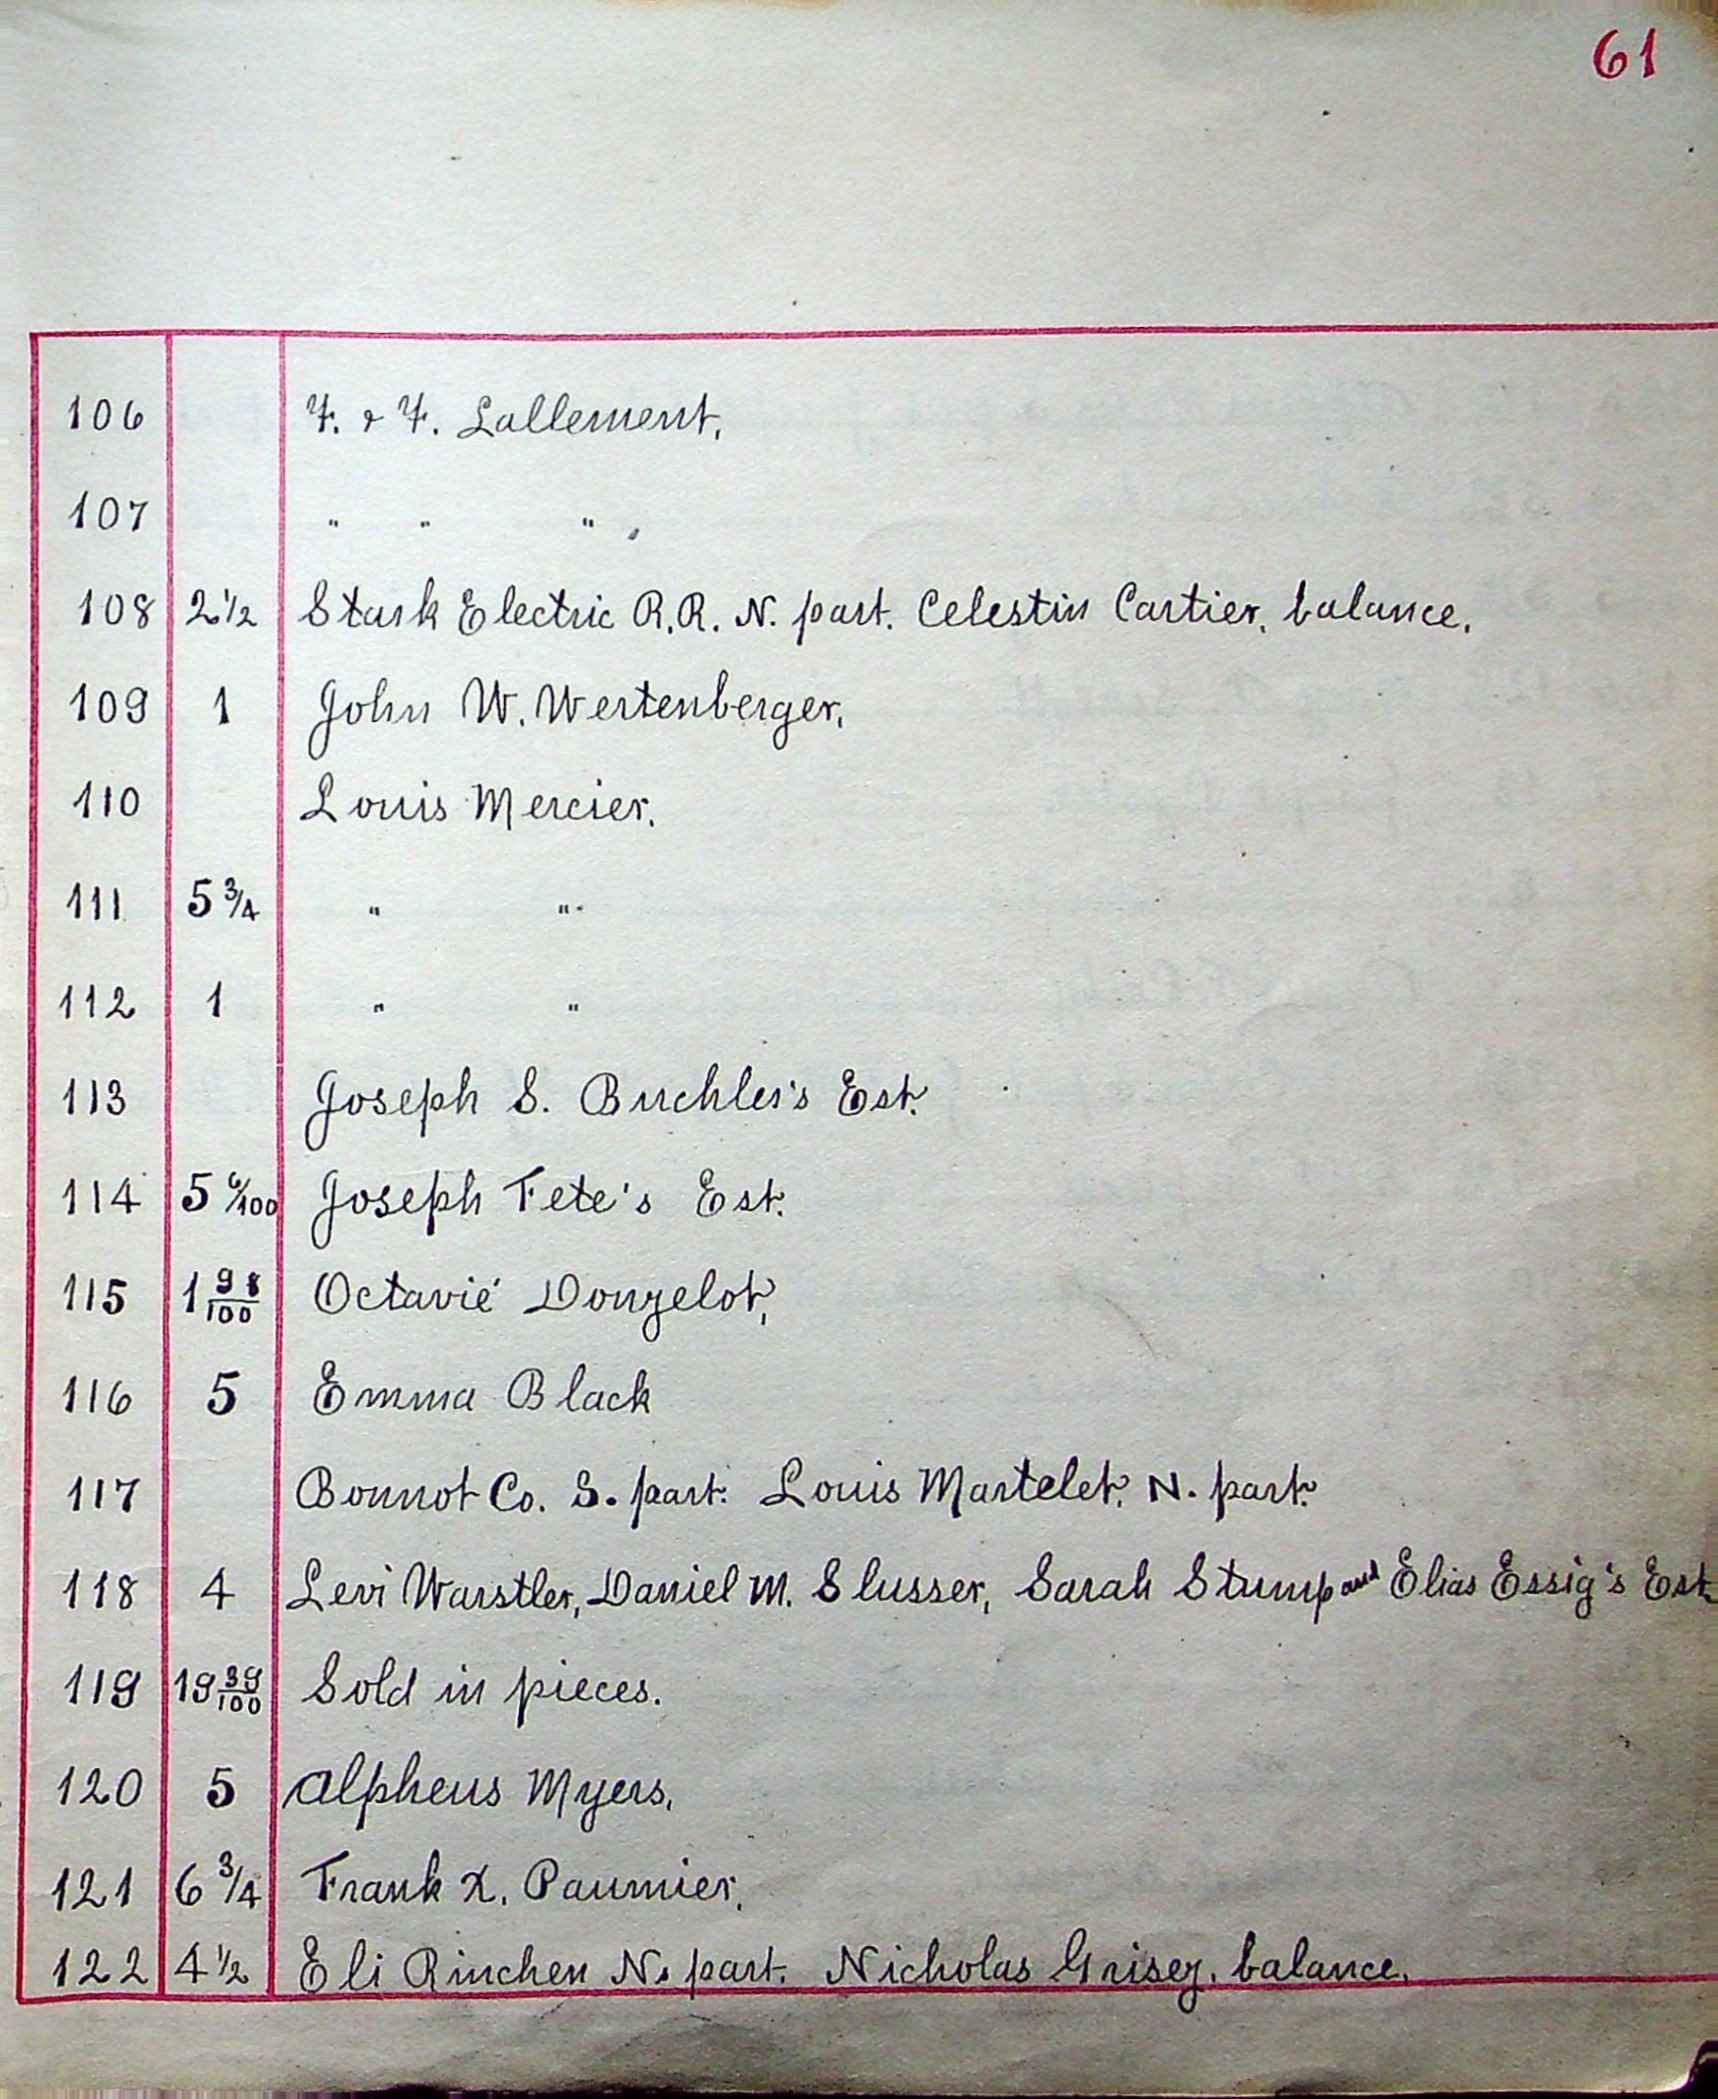 61
106 F. & F. Lallement.
107 " " " ,
108 2 1/2 Stark Electric R.R. N. part. Celestin Cartier, balance.
109 1 John W. Wertenberger,
110 Louis Mercier.
111 5 3/4 " "
112 1 " "
113 Joseph S. Buchler's Est.
114 5 6/100 Joseph Fete's Est.
115 1 98/100 Octavié Donzelot,
116 5 Emma Black
117 Bonnot Co. S. part. Louis Martelet, N. part.
118 4 Levi Warstler, Daniel M. Slusser, Sarah Stump and Elias Essig's Est.
119 19 39/100 Sold in pieces.
120 5 Alpheus Myers,
121 6 3/4 Frank X. Paumier,
122 4 1/2 Eli Rinchen N. part. Nicholas Grisez, balance.